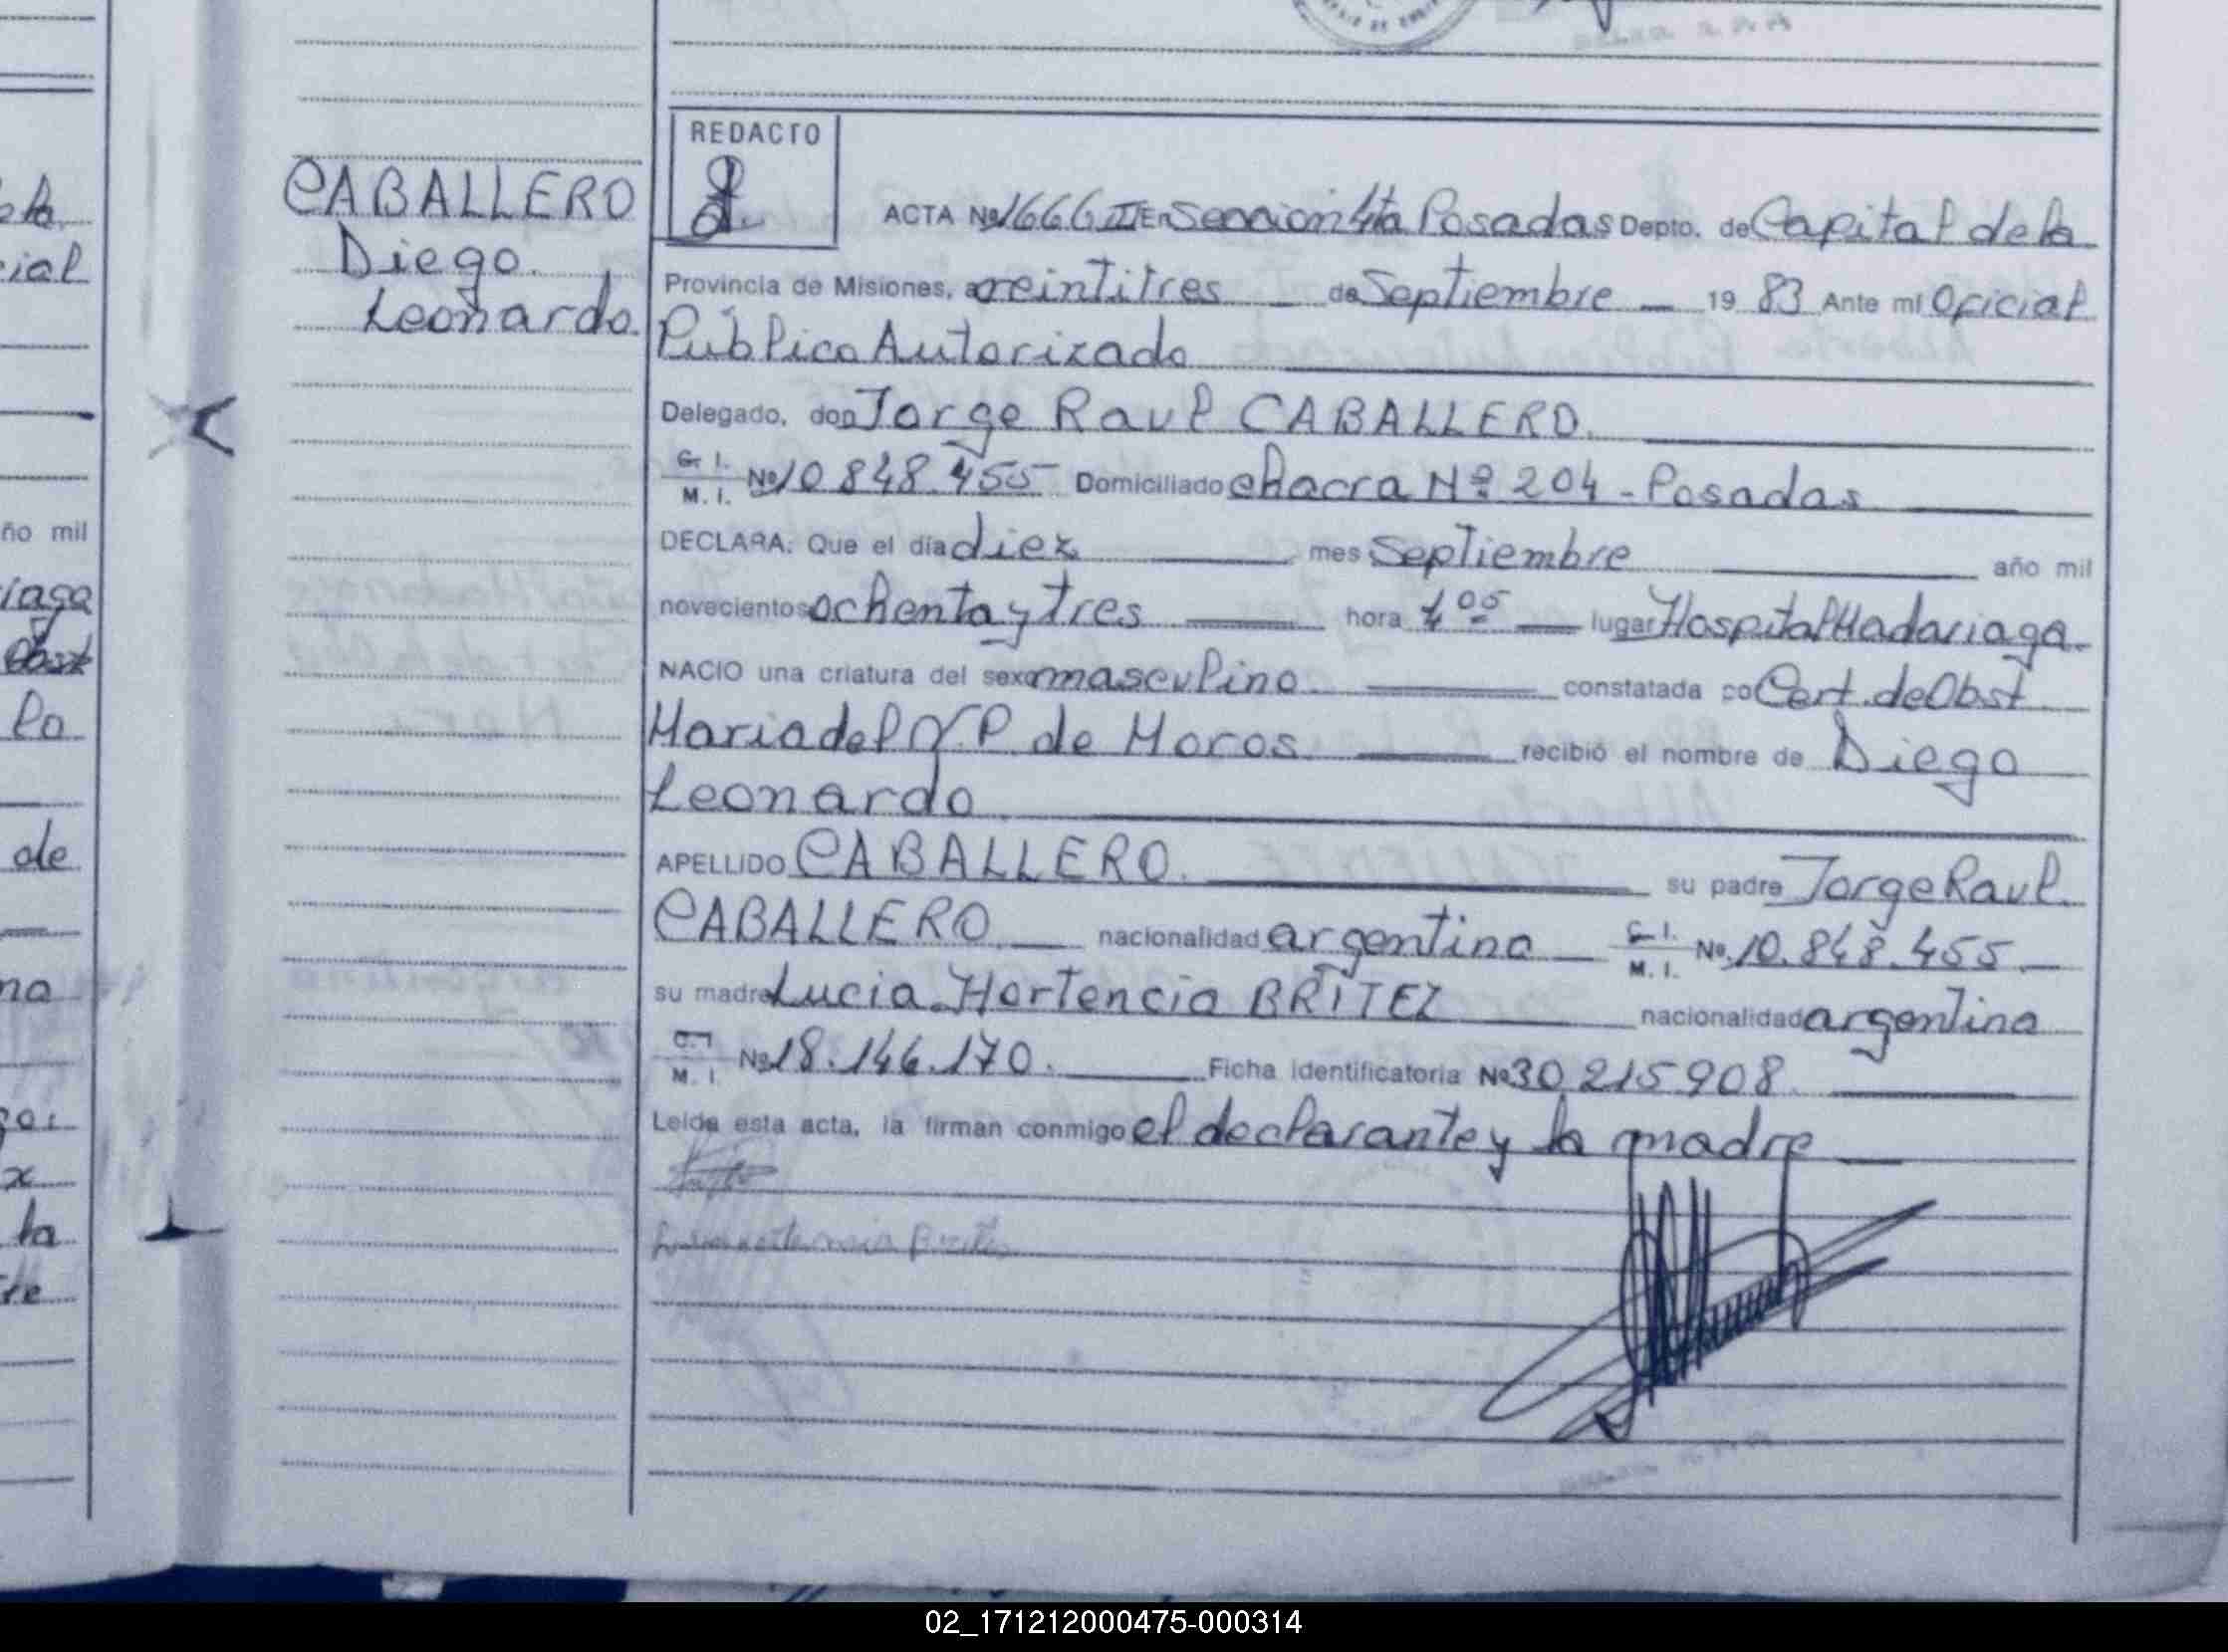 CABALLERO
Diego
Leonardo
REDACTO
ACTA Nº 1666 III En Sección 4ta Posadas Depto. de Capital de la
Provincia de Misiones, a veintitres de Septiembre 19 83 Ante mí Oficial
Público Autorizado
Delegado, don Jorge Raul CABALLERO.
C. I. M. I. Nº 10.848.455 Domiciliado chacra Nº 204 - Posadas
DECLARA: Que el día diez mes Septiembre año mil
novecientos ochenta y tres hora 4 05 lugar Hospital Madariaga
NACIO una criatura del sexo masculino constatada po Cert. de Obst
Maria del P. de Moros recibió el nombre de Diego
Leonardo
APELLIDO CABALLERO. su padre Jorge Raul
CABALLERO nacionalidad argentina C. I. M. I. Nº 10.848.455
su madre Lucia Hortencia BRITEZ nacionalidad argentina
C. I. M. I. Nº 18.146.170. Ficha identificatoria Nº 30 215 908
Leida esta acta, la firman conmigo el declarante y la madre
año mil
de
la
02_171212000475-000314